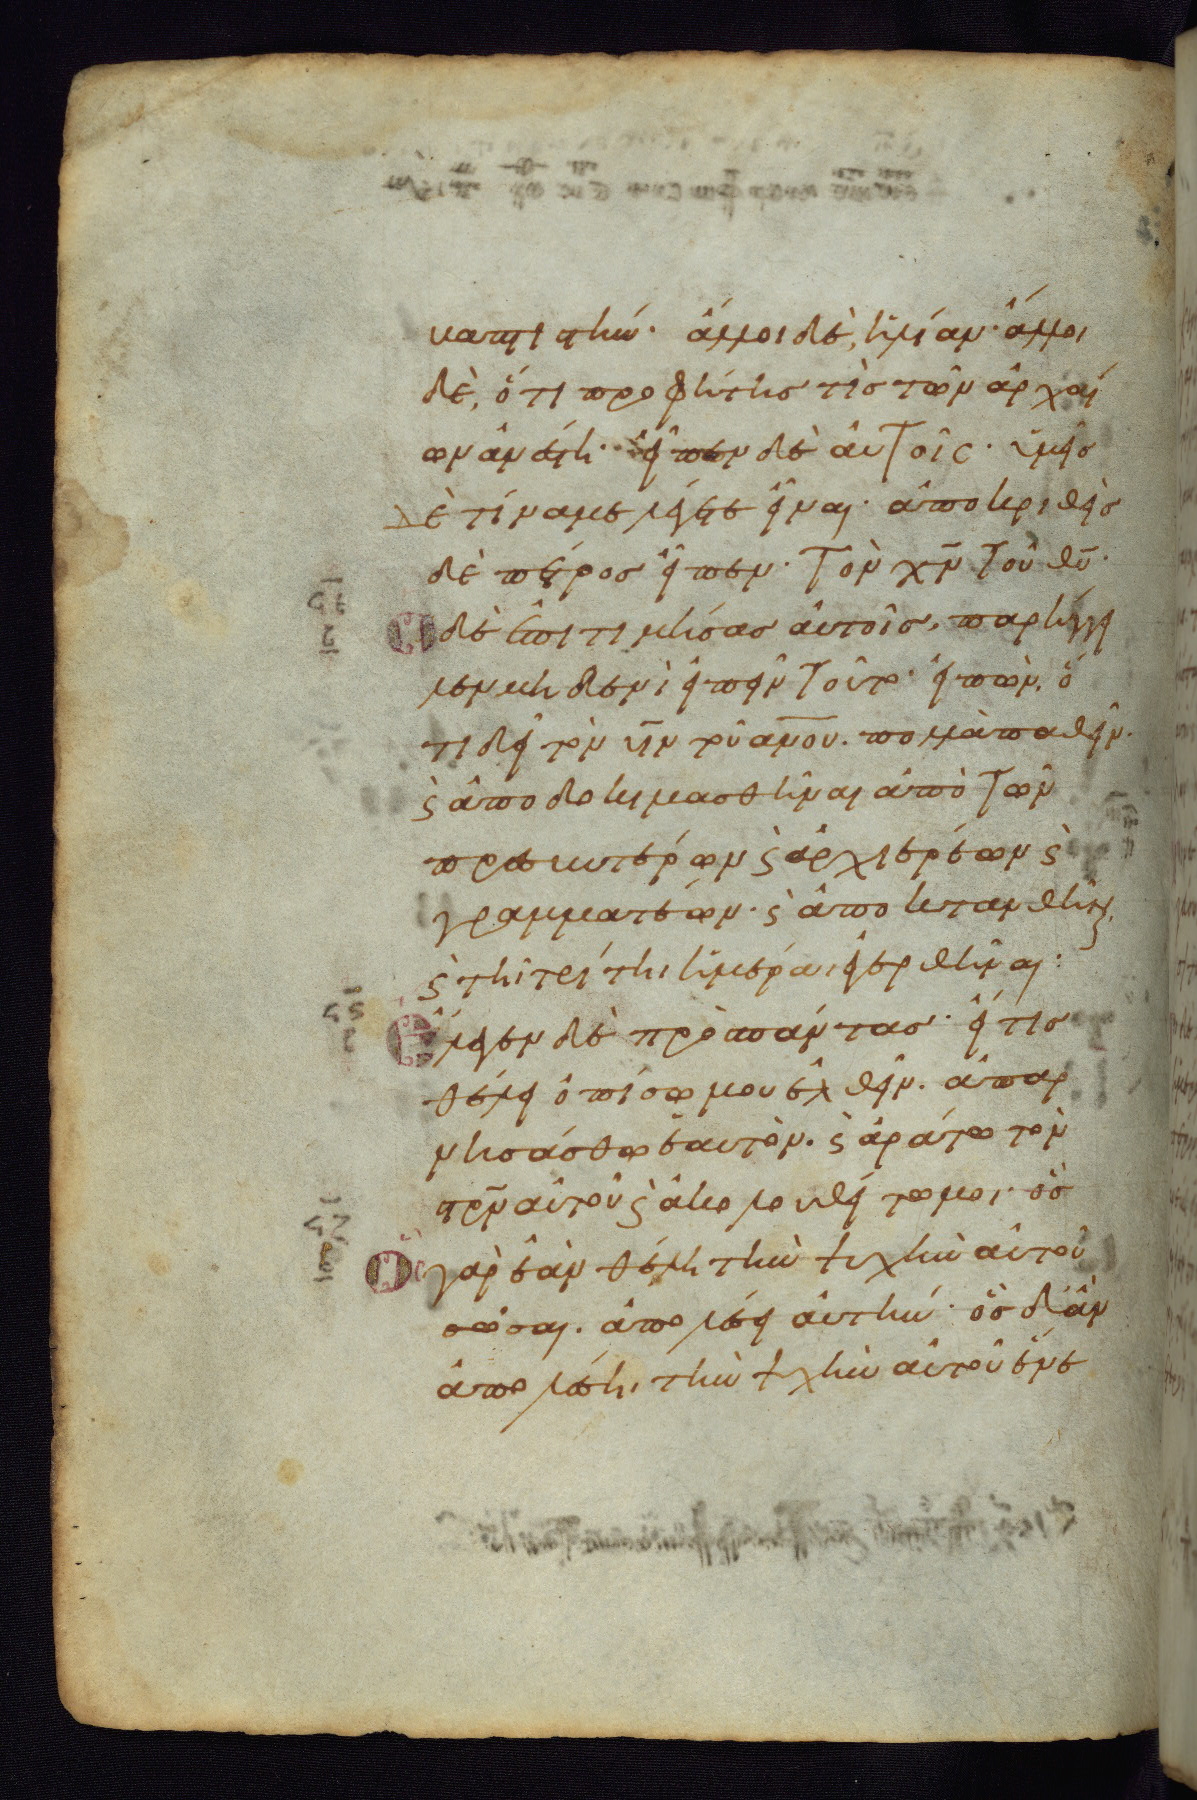 βαπτιστήν· ἄλλοι δὲ, ἡλίαν· ἄλλοι
δὲ, ὅτι προφήτης τὶς τῶν ἀρχαί
ων ἀνέστη· εἶπεν δὲ αὐτοῖς· ὑμεῖς
δὲ τίνα με λέγετε εἶναι· ἀποκριθεὶς
δὲ πέτρος εἶπεν· τὸν χν̄ τοῦ θῡ·
Ὁ δὲ ἐπιτιμήσας αὐτοῖς, παρήγγει
λεν μηδενὶ εἰπεῖν τοῦτο· εἰπὼν, ὅ
τι δεῖ τὸν ῡν τοῦ ανου̅. πολλὰ παθεῖν·
ϛ ἀποδοκιμασθῆναι ἀπὸ τῶν
πρεσβυτέρων ϛ ἀρχιερέων ϛ
γραμματέων· ϛ ἀποκτανθῆναι,
ϛ τῆ τρίτηι ἡμέραι ἐγερθῆναι:
Ἔλεγεν δὲ πρὸς πάντας· εἴ τις
θέλει ὀπίσω μου ἐλθεῖν. ἀπαρ
νησάσθω ἑαυτὸν. ϛ ἀράτω τὸν
σ̅ρ̅ν αὐτοῦ ϛ ἀκολουθείτω μοι· ὃς
Ὃς γὰρ ἐὰν θέλη τὴν ψυχὴν αὐτοῦ
σῶσαι. ἀπολέσει αὐτήν· ὃς δ' ἂν
ἀπολέση, τὴν ψυχὴν αὐτοῦ ἕνε